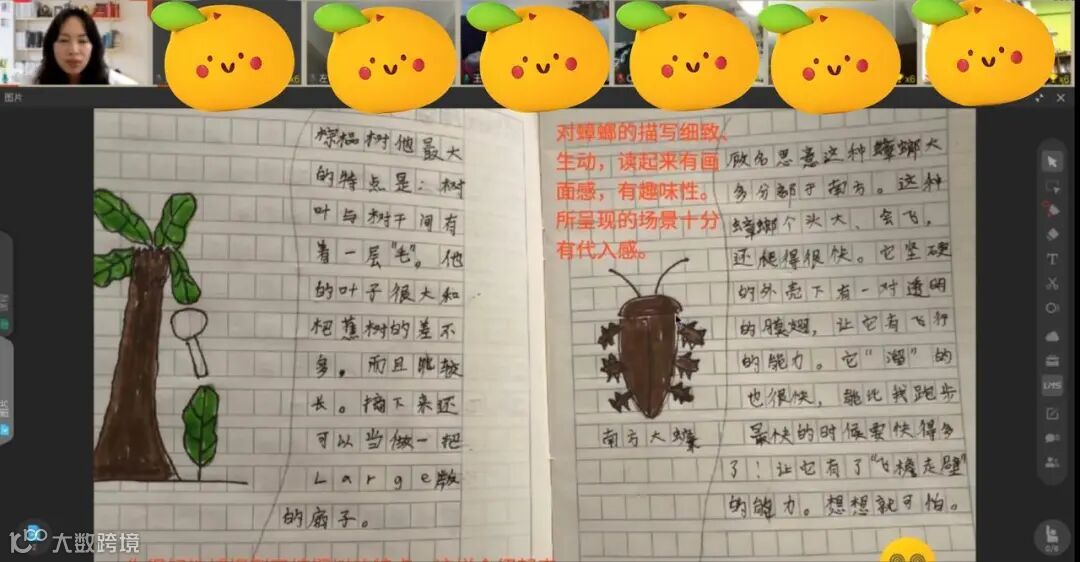 图片
棕榈树他最大
的特点是：树
叶与树干间有
着一层“毛”。他
的叶子很大和
把蕉树的差不
多。而且比较
长。摘下来还
可以当做一把
Large版
的扇子。
对蟑螂的描写细致、
生动，读起来有画
面感，有趣味性。
所呈现的场景十分
有代入感。
顾名思意这种蟑螂大
多分部于南方。这种
蟑螂个头大、会飞，
还爬得很快。它坚硬
的外壳下有一对透明
的膜翅，让它有飞行
的能力。它“溜”的
也很快，能比我跑步
最快的时候要快得多
了！让它有了“飞檐走壁”
的能力。想想就可怕。
南方大蠊
LMS
0/6
大数跨境